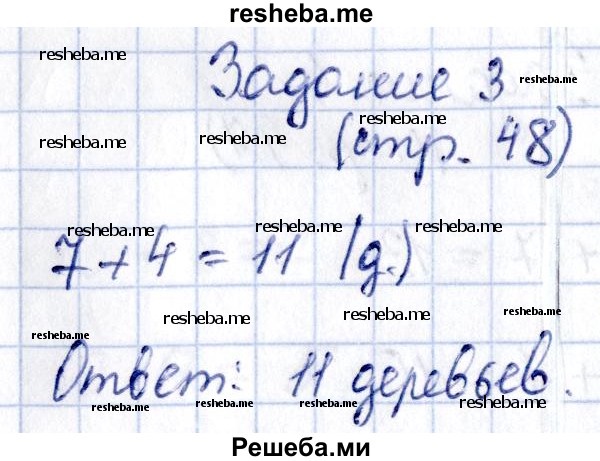 resheba.me
resheba.me resheba.me
Задание 3
resheba.me
resheba.me resheba.me
(стр. 48)
resheba.me resheba.me resheba.me
7 + 4 = 11 (д.)
resheba.me resheba.me
resheba.me resheba.me
Ответ: 11 деревьев.
resheba.me resheba.me resheba.me resheba.me
Решеба.ми